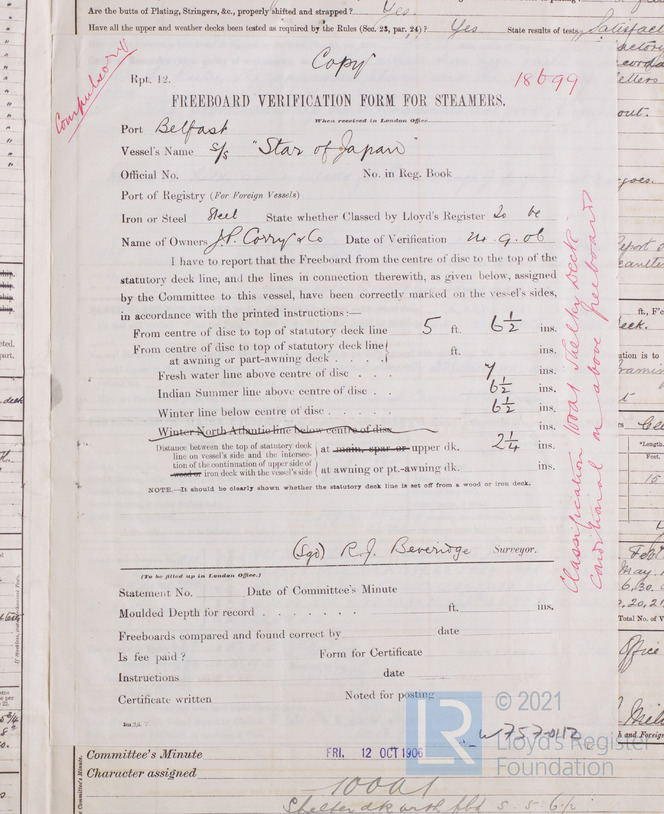 Are the butts of Plating, Stringers, &c., properly shifted and strapped? Yes
Have all the upper and weather decks been tested as required by the Rules (Sec. 23, par. 24)? Yes State results of tests,
Copy
Rpt. 12.
18699
Compulsory
FREEBOARD VERIFICATION FORM FOR STEAMERS.
When received in London Office.
Port Belfast
Vessel's Name S/S "Star of Japan"
Official No. No. in Reg. Book
Port of Registry (For Foreign Vessels)
Iron or Steel Steel State whether Classed by Lloyd's Register To be
Name of Owners J.P. Corry & Co Date of Verification 24.9.06
I have to report that the Freeboard from the centre of disc to the top of the
statutory deck line, and the lines in connection therewith, as given below, assigned
by the Committee to this vessel, have been correctly marked on the vessel's sides,
in accordance with the printed instructions :—
From centre of disc to top of statutory deck line 5 ft. 6½ ins.
From centre of disc to top of statutory deck line
at awning or part-awning deck . . . . ft. ins.
Fresh water line above centre of disc . . . 7 ins.
Indian Summer line above centre of disc . . 6½ ins.
Winter line below centre of disc . . . . . 6½ ins.
Winter North Atlantic line below centre of disc ins.
Distance between the top of statutory deck
line on vessel's side and the intersec-
tion of the continuation of upper side of
wood or iron deck with the vessel's side
at main, spar or upper dk. 2¼ ins.
at awning or pt.-awning dk. ins.
NOTE.—It should be clearly shown whether the statutory deck line is set off from a wood or iron deck.
Classification 100A1 Shelter Deck
conditional on above freeboard
(Sgd) R.J. Beveridge Surveyor.
(To be filled up in London Office.)
Statement No. Date of Committee's Minute
Moulded Depth for record . . . . . . . ft. ins.
Freeboards compared and found correct by date
Is fee paid? Form for Certificate
Instructions date
Certificate written Noted for posting
© 2021
LR
Lloyd's Register
Foundation
W757-0112
Committee's Minute FRI. 12 OCT 1906
Character assigned
100A1